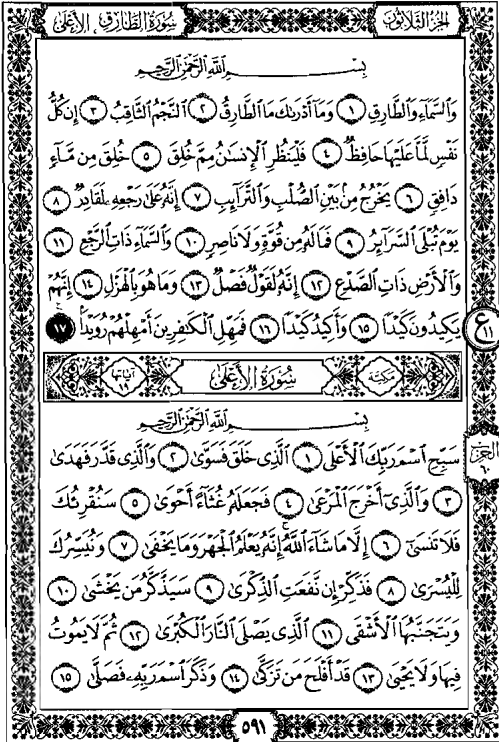 الجزء الثلاثون
سورة الطارق ، الأعلى
بِسْمِ ٱللَّهِ ٱلرَّحْمَٰنِ ٱلرَّحِيمِ
وَٱلسَّمَآءِ وَٱلطَّارِقِ ١ وَمَآ أَدْرَىٰكَ مَا ٱلطَّارِقُ ٢ ٱلنَّجْمُ ٱلثَّاقِبُ ٣ إِن كُلُّ
نَفْسٍ لَّمَّا عَلَيْهَا حَافِظٌ ٤ فَلْيَنظُرِ ٱلْإِنسَٰنُ مِمَّ خُلِقَ ٥ خُلِقَ مِن مَّآءٍ
دَافِقٍ ٦ يَخْرُجُ مِنۢ بَيْنِ ٱلصُّلْبِ وَٱلتَّرَآئِبِ ٧ إِنَّهُۥ عَلَىٰ رَجْعِهِۦ لَقَادِرٌ ٨
يَوْمَ تُبْلَى ٱلسَّرَآئِرُ ٩ فَمَا لَهُۥ مِن قُوَّةٍ وَلَا نَاصِرٍ ١٠ وَٱلسَّمَآءِ ذَاتِ ٱلرَّجْعِ ١١
وَٱلْأَرْضِ ذَاتِ ٱلصَّدْعِ ١٢ إِنَّهُۥ لَقَوْلٌ فَصْلٌ ١٣ وَمَا هُوَ بِٱلْهَزْلِ ١٤ إِنَّهُمْ
يَكِيدُونَ كَيْدًا ١٥ وَأَكِيدُ كَيْدًا ١٦ فَمَهِّلِ ٱلْكَٰفِرِينَ أَمْهِلْهُمْ رُوَيْدًۢا ١٧
ع ١١
مكية
سورة الأعلى
آياتها ١٩
بِسْمِ ٱللَّهِ ٱلرَّحْمَٰنِ ٱلرَّحِيمِ
سَبِّحِ ٱسْمَ رَبِّكَ ٱلْأَعْلَى ١ ٱلَّذِى خَلَقَ فَسَوَّىٰ ٢ وَٱلَّذِى قَدَّرَ فَهَدَىٰ
الحزب ٦٠
٣ وَٱلَّذِىٓ أَخْرَجَ ٱلْمَرْعَىٰ ٤ فَجَعَلَهُۥ غُثَآءً أَحْوَىٰ ٥ سَنُقْرِئُكَ
فَلَا تَنسَىٰٓ ٦ إِلَّا مَا شَآءَ ٱللَّهُ إِنَّهُۥ يَعْلَمُ ٱلْجَهْرَ وَمَا يَخْفَىٰ ٧ وَنُيَسِّرُكَ
لِلْيُسْرَىٰ ٨ فَذَكِّرْ إِن نَّفَعَتِ ٱلذِّكْرَىٰ ٩ سَيَذَّكَّرُ مَن يَخْشَىٰ ١٠
وَيَتَجَنَّبُهَا ٱلْأَشْقَى ١١ ٱلَّذِى يَصْلَى ٱلنَّارَ ٱلْكُبْرَىٰ ١٢ ثُمَّ لَا يَمُوتُ
فِيهَا وَلَا يَحْيَىٰ ١٣ قَدْ أَفْلَحَ مَن تَزَكَّىٰ ١٤ وَذَكَرَ ٱسْمَ رَبِّهِۦ فَصَلَّىٰ ١٥
٥٩١